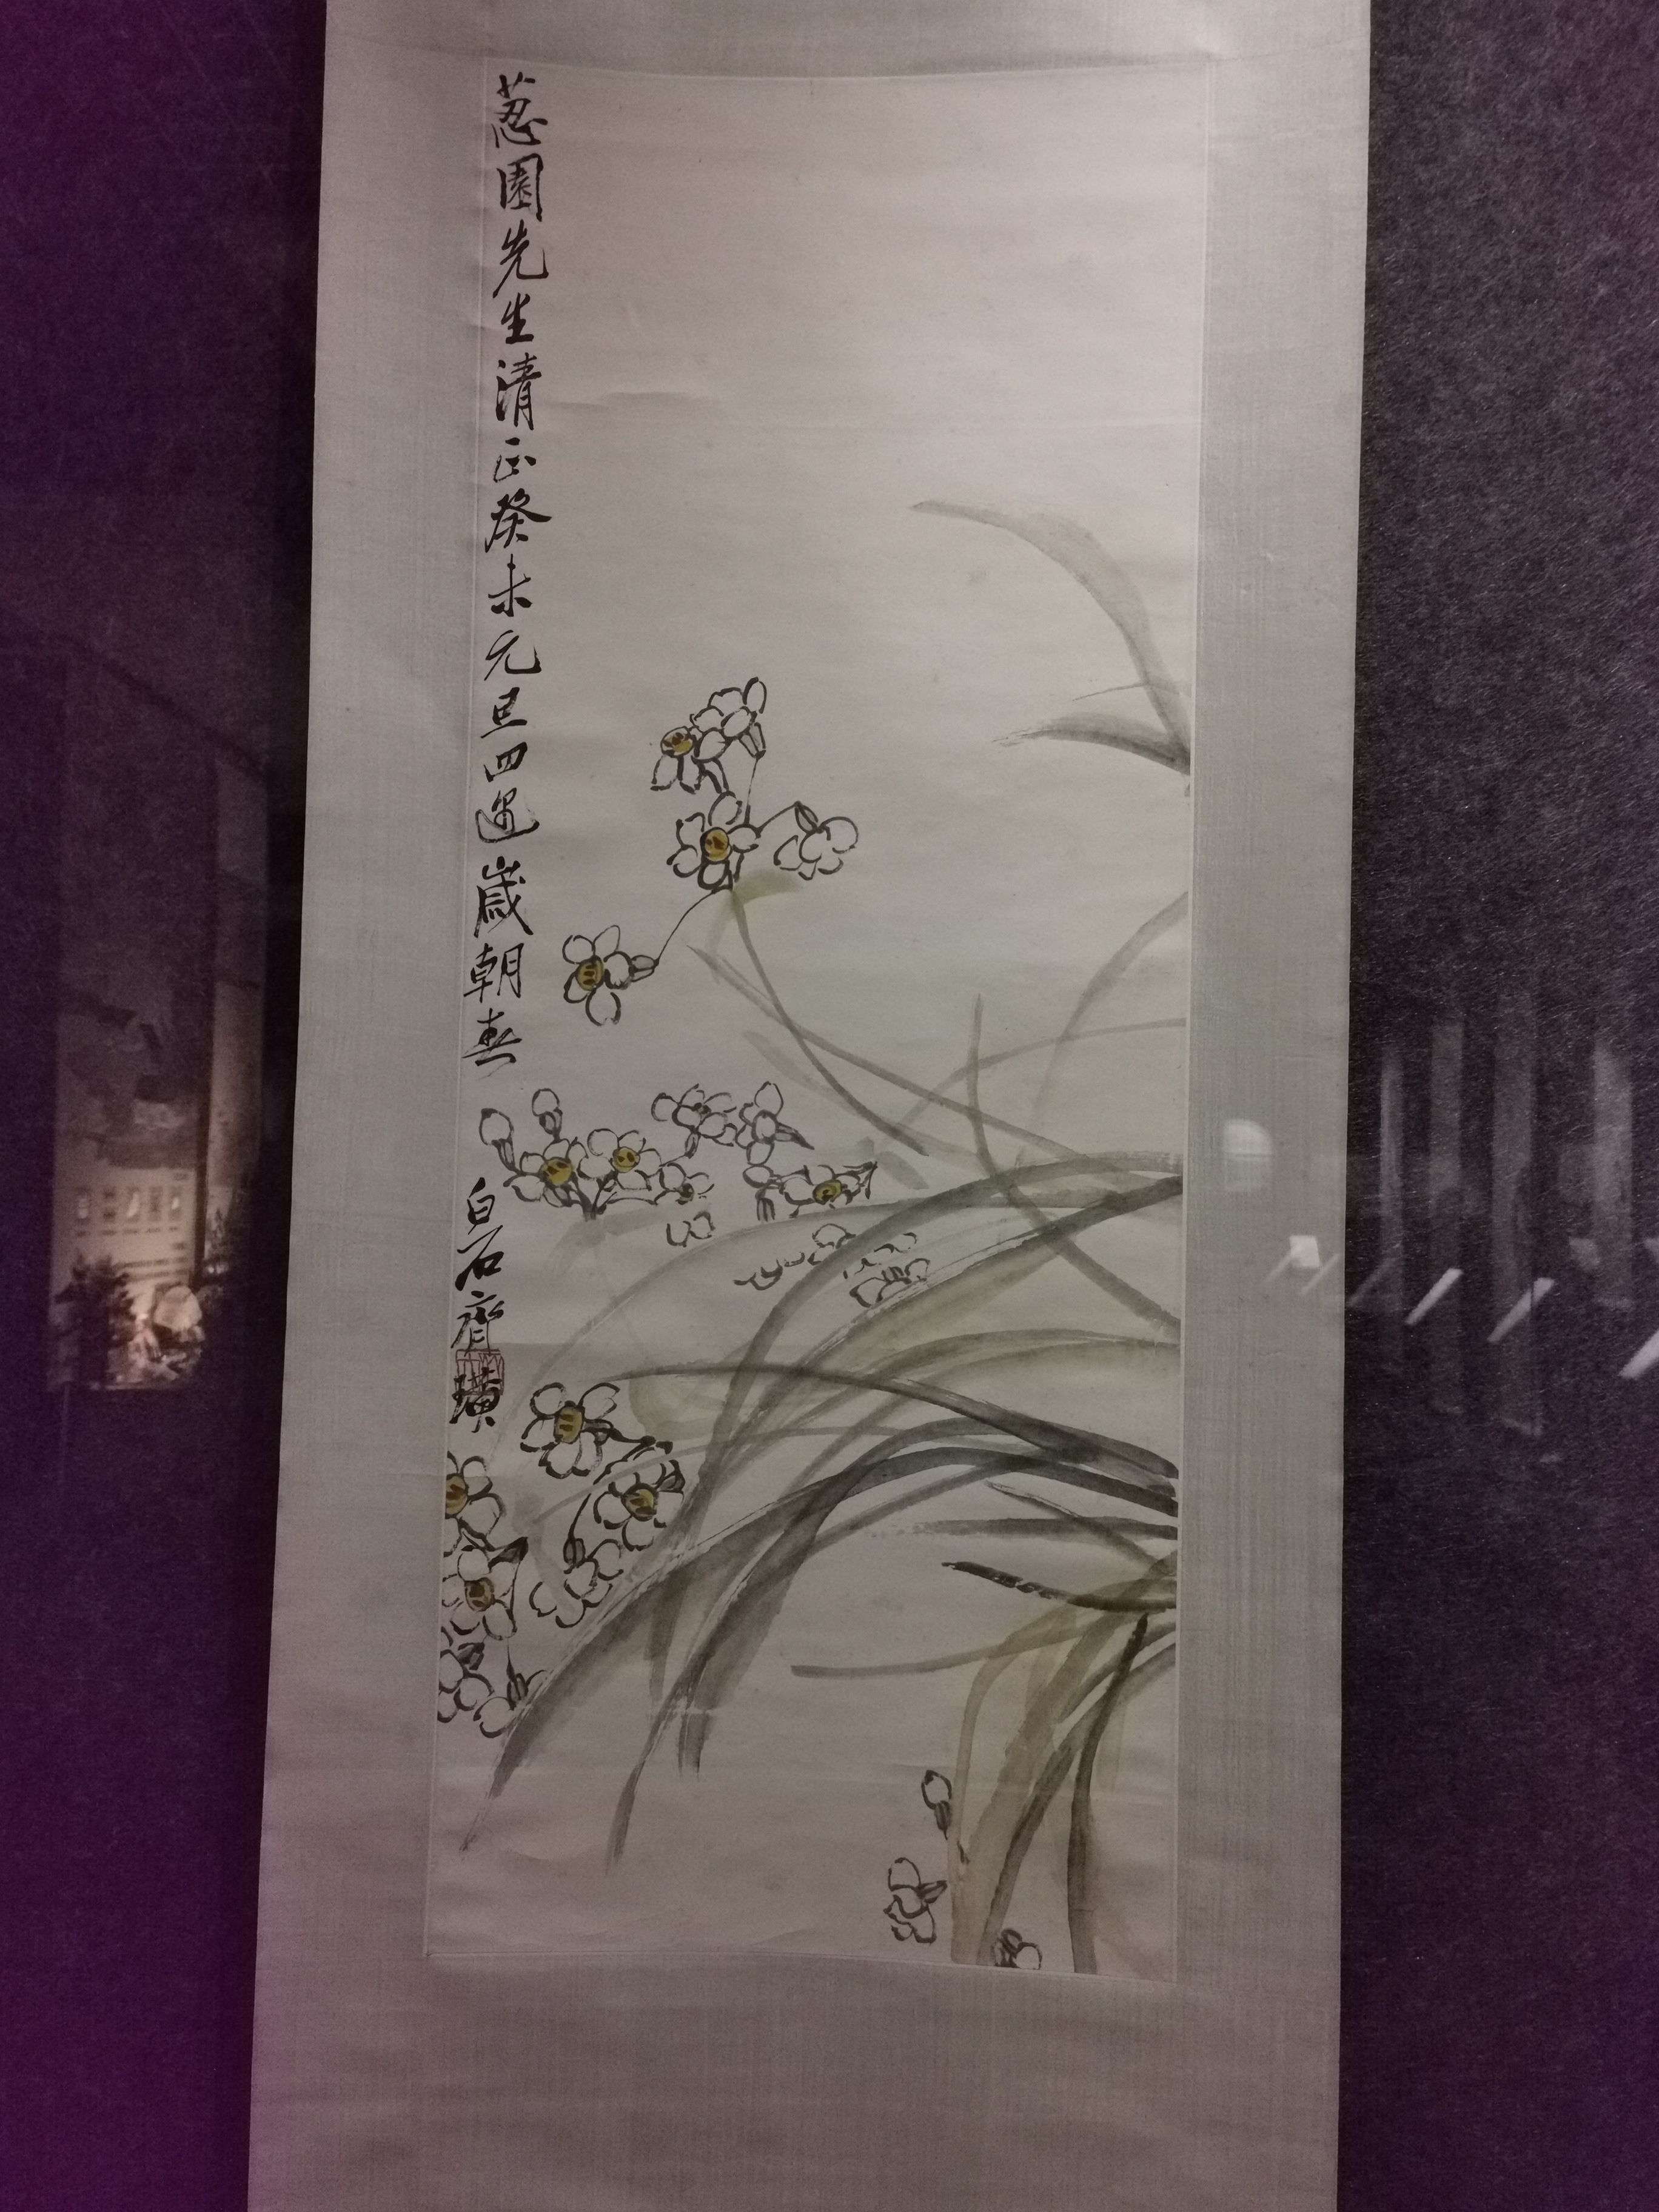 荵園先生清正癸未元旦四過歲朝春
白石齊璜